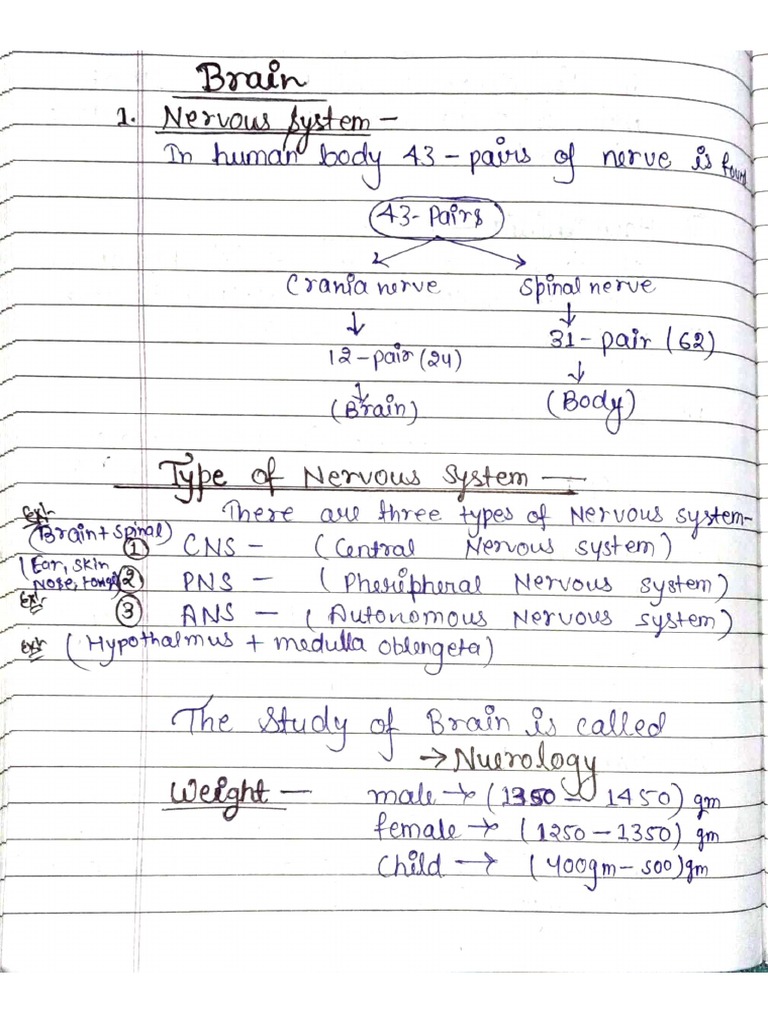 Brain
1. Nervous System –
In human body 43 – pairs of nerve is found
43 - Pairs
Crania nerve
Spinal nerve
12 – pair (24)
31 – pair (62)
(Brain)
(Body)
Type of Nervous System —
There are three types of Nervous system –
Ex:-
(Brain + Spinal)
① CNS – (Central Nervous system)
(Ear, skin
Nose, tongue)
② PNS – (Pheripheral Nervous system)
Ex:-
③ ANS – (Autonomous Nervous system)
Ex:- (Hypothalmus + medulla oblengeta)
The Study of Brain is called
→ Nuerology
Weight – male → (1350 – 1450) gm
female → (1250 – 1350) gm
Child → (400gm – 500) gm